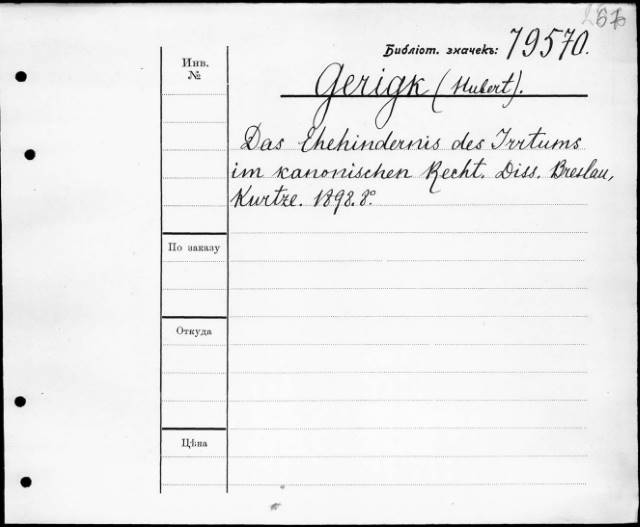 Библіот. значекъ: 79570.
Инв.
№
Gerigk (Hubert).
Das Ehehindernis des Irrtums
im kanonischen Recht. Diss. Breslau,
Kurtze. 1898. 8°.
По заказу
Откуда
Цѣна